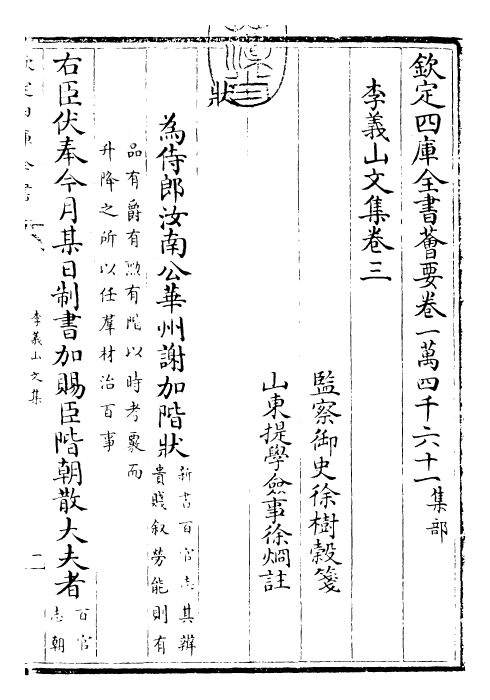 欽定四庫全書薈要卷一萬四千六十一集部
李義山文集卷三
監察御史徐樹穀箋
山東提學僉事徐炯註
狀
為侍郎汝南公華州謝加階狀新書百官志其辨
貴賤叙勞能則有
品有爵有勲有階以時考覈而
升降之所以任羣材治百事
右臣伏奉今月某日制書加賜臣階朝散大夫者百官
志朝
欽定四庫全書
李義山文集
二